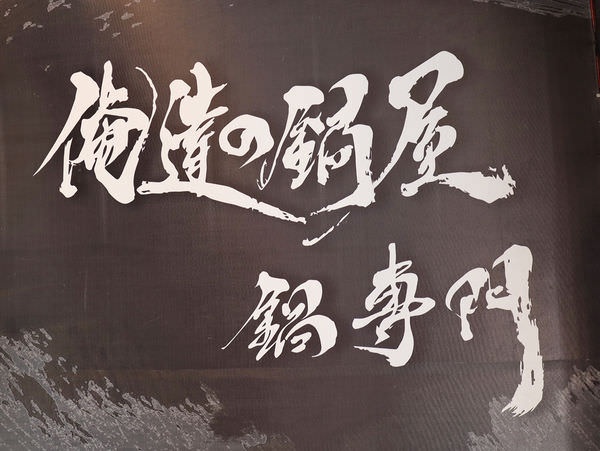 俺達の鍋屋
鍋專門